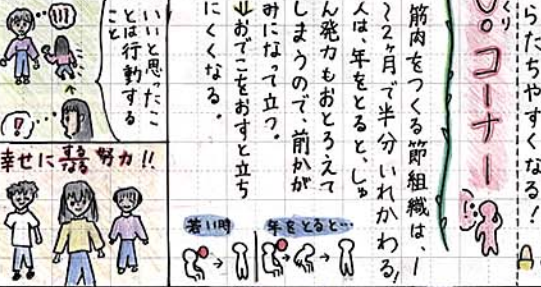 らたちやすくなる!
くり
〇。コーナー
筋肉をつくる節組織は、1
〜2ヶ月で半分いれかわる!
人は、年をとると、しゅ
ん発力もおとろえて
しまうので、前かが
みになって立つ。
⇒おでこをおすと立ち
にくくなる。
若い時
年をとると…
いいと思ったこ
とは行動する
こと
!?…
幸せにするなる努力!!